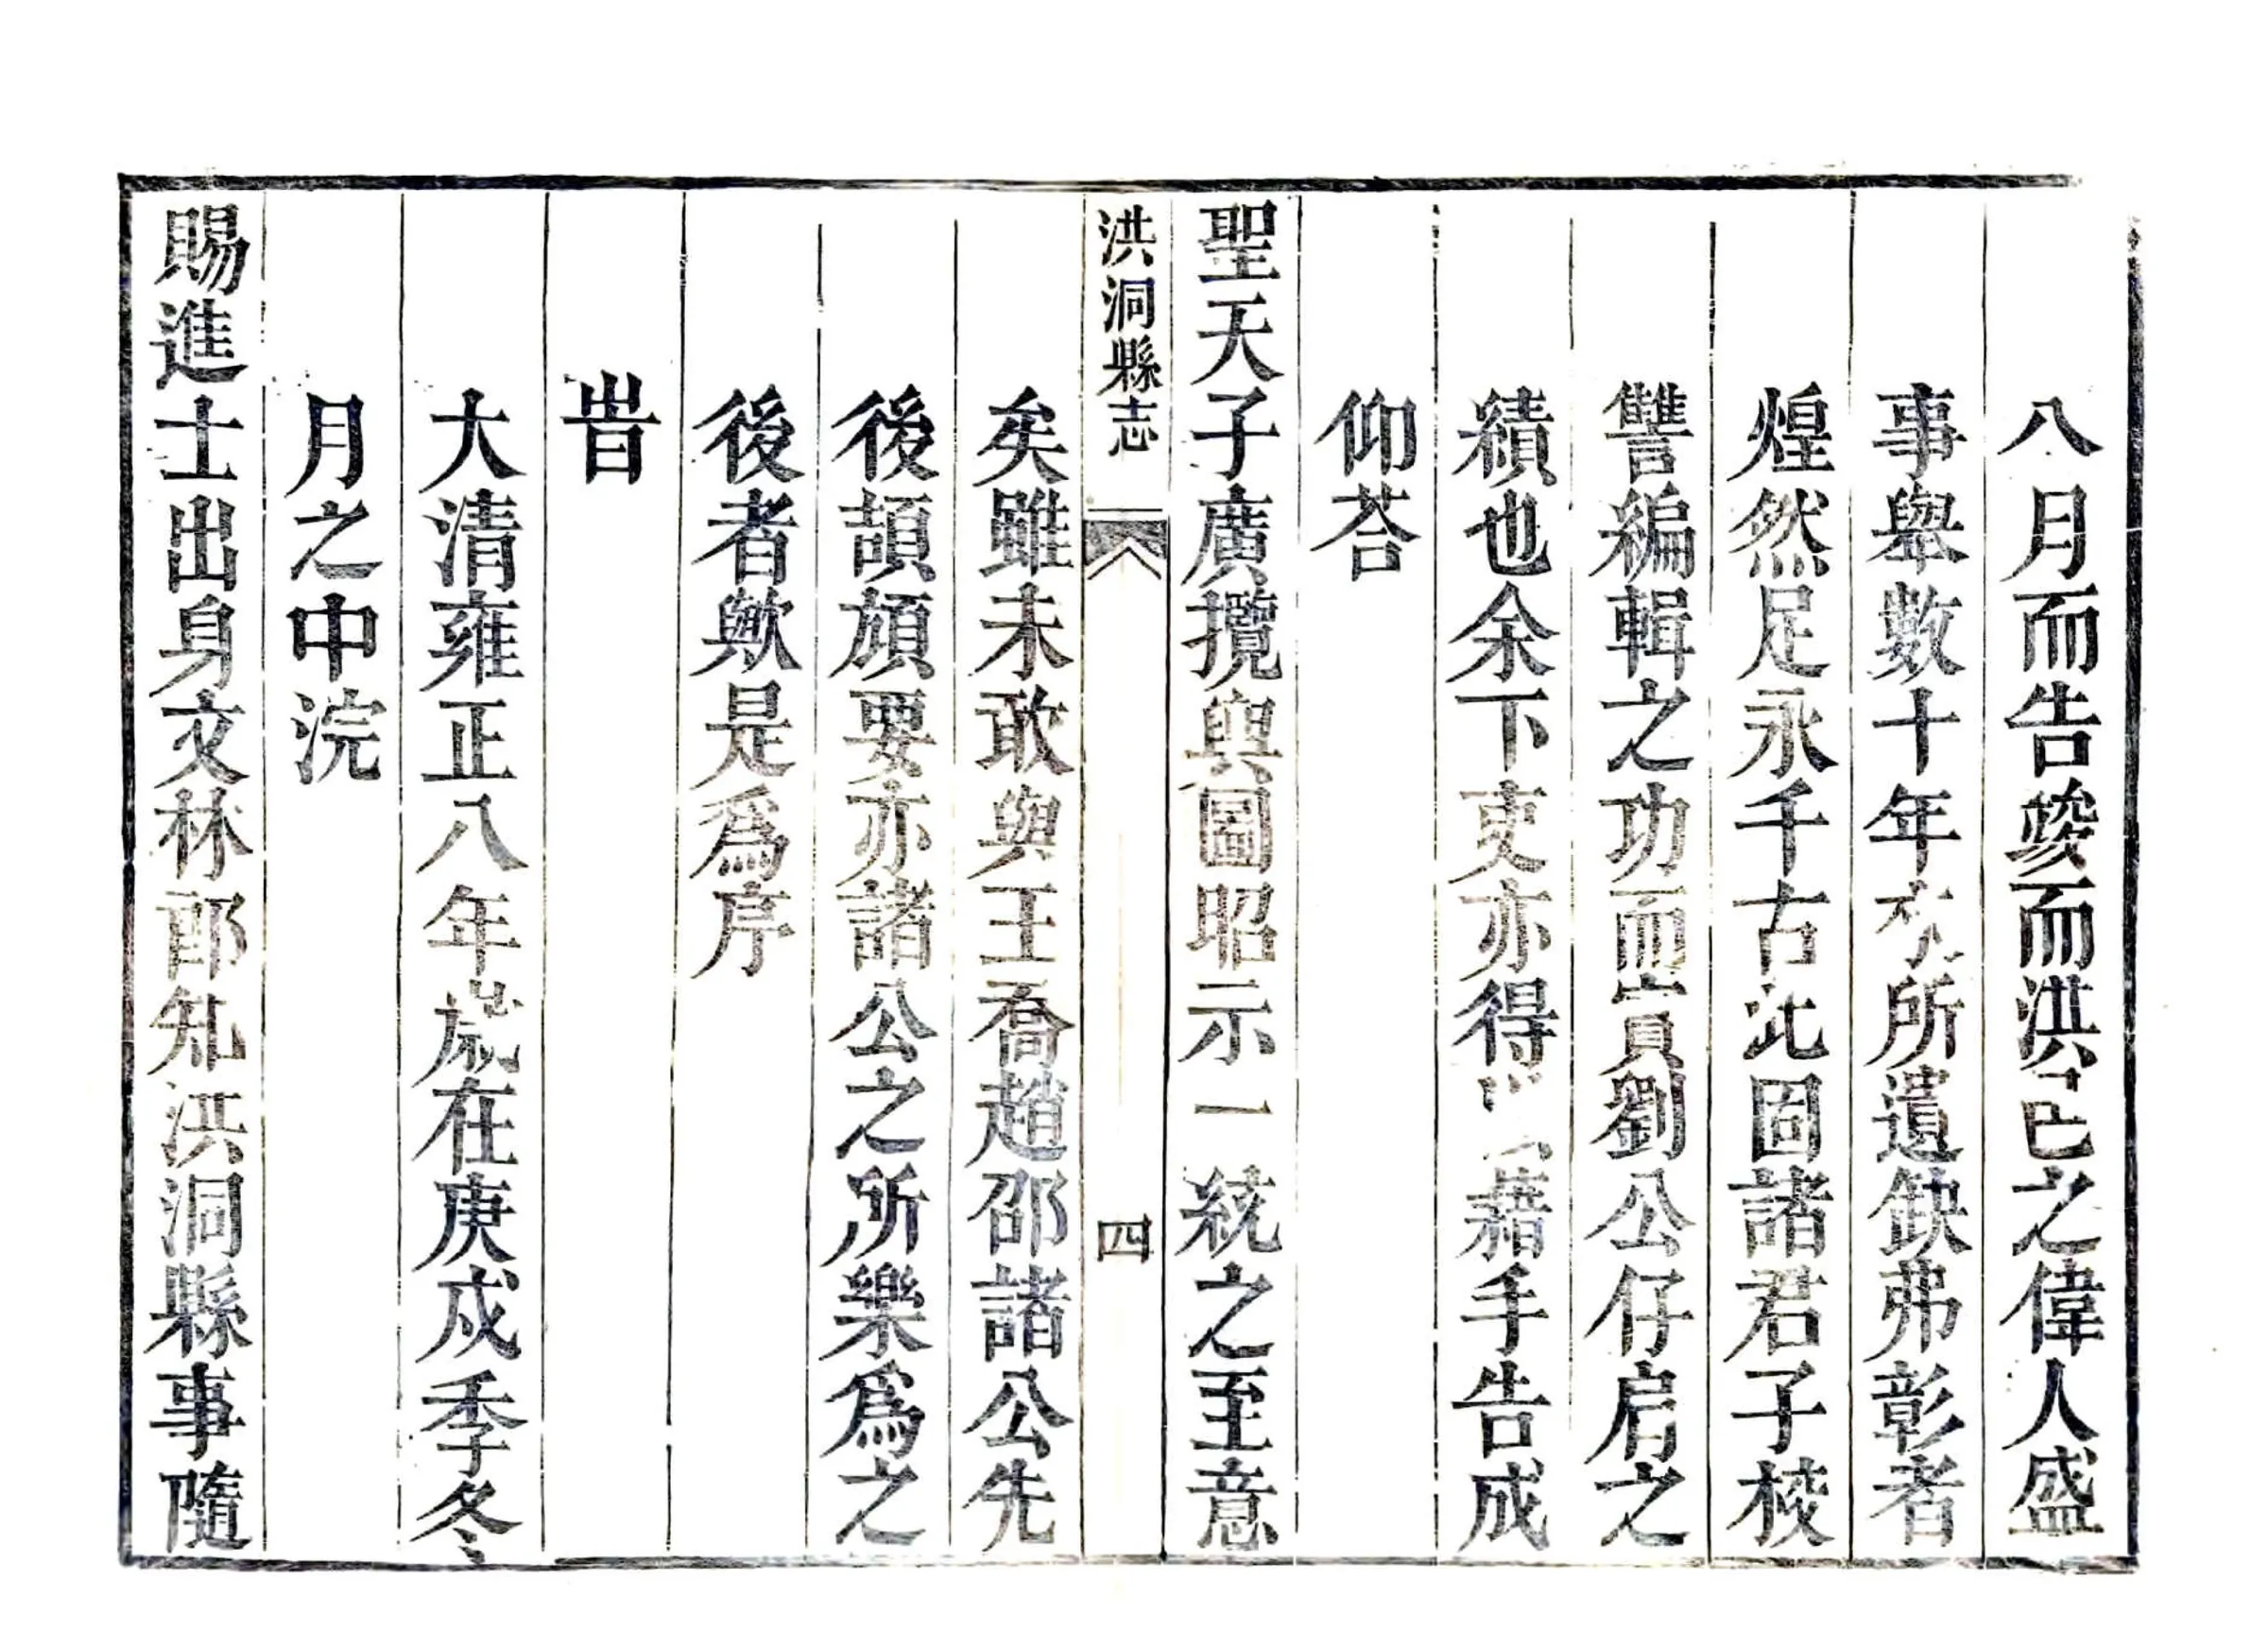 八月而告竣而洪邑之偉人盛
事舉數十年來所遺缺弗彰者
煌然足永千古此固諸君子校
讐編輯之功而實劉公仔肩之
績也余下吏亦得藉手告成
仰荅
聖天子廣攬輿圖昭示一統之至意
洪洞縣志 四
矣雖未敢與王喬趙邵諸公先
後頡頏要亦諸公之所樂爲之
後者歟是爲序
旹
大清雍正八年歲在庚戌季冬
月之中浣
賜進士出身文林郎知洪洞縣事隨